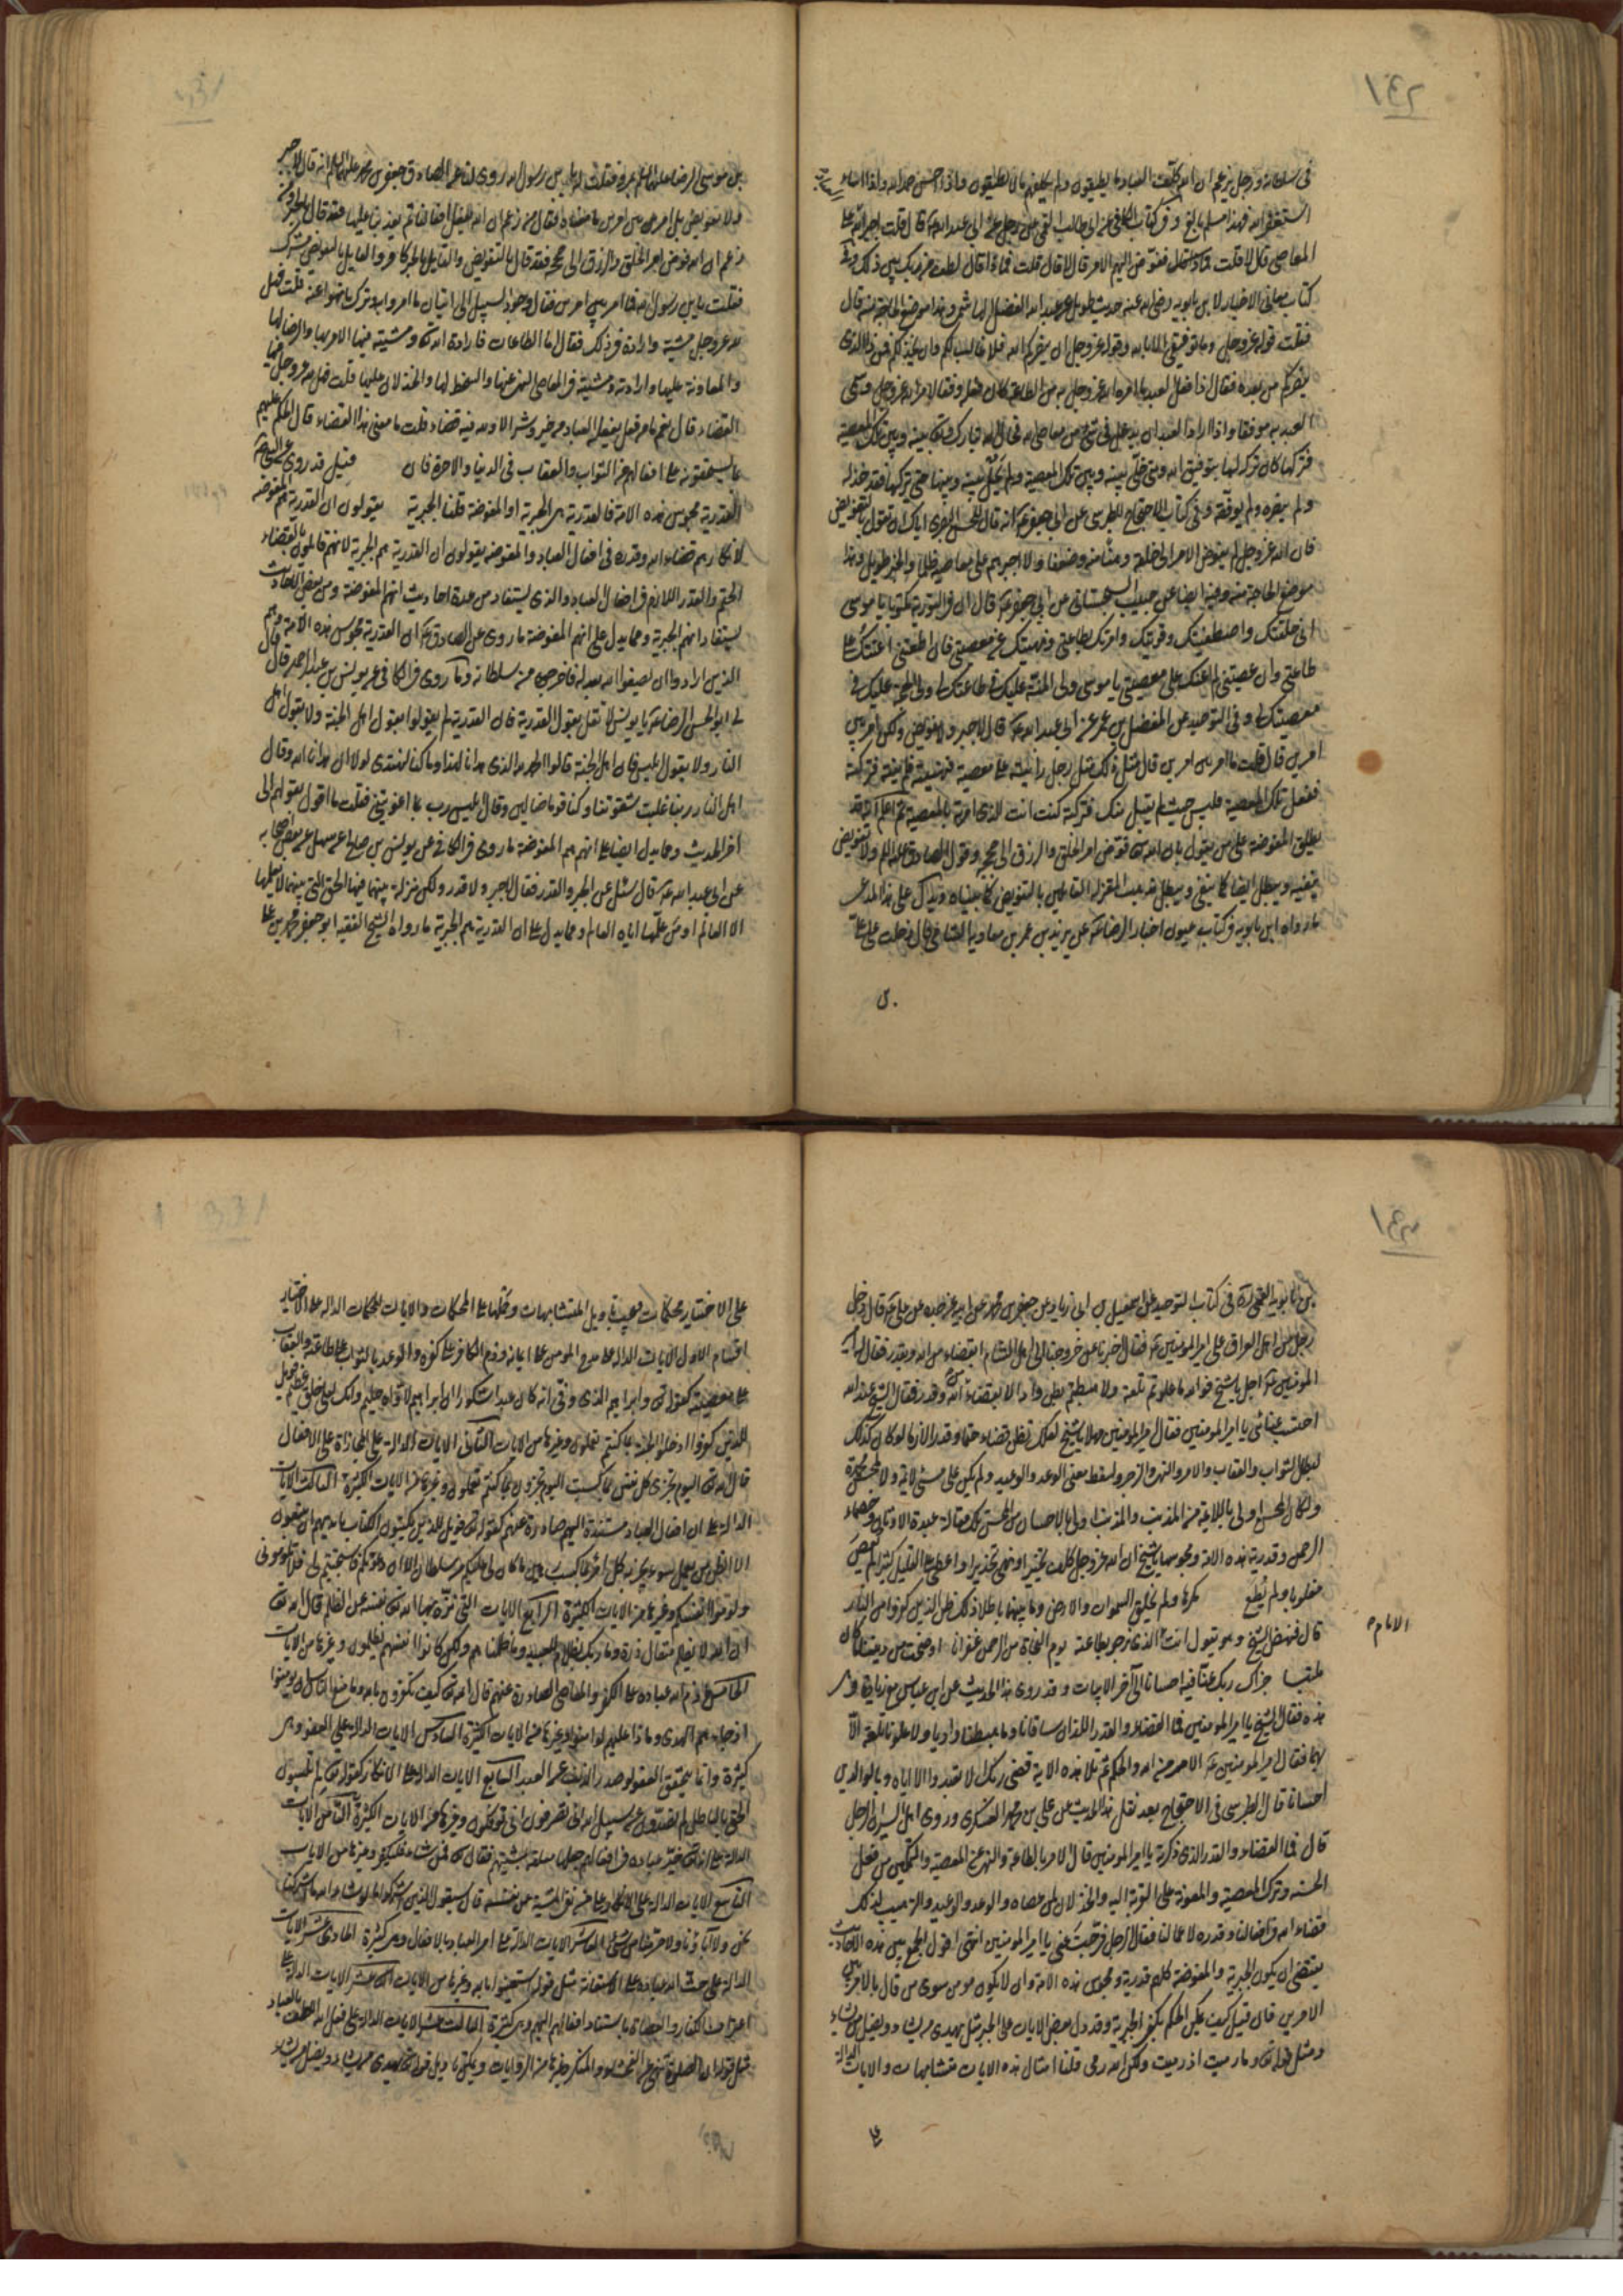 ١٤٢
في سلطانه ورجل يزعم ان الله كلف العباد ما يطيقون ولم يكلفهم ما لا يطيقون واذا احسن حمد الله واذا اساء
استغفر الله فهذا مسلم بالغ وفي كتاب الكافي عن ابي طالب القمي عن رجل عن ابي عبد الله قال قلت اجبر الله على
المعاصي قال لا قلت ففوض اليهم الامر قال لا قال قلت فماذا قال لطف من ربك بين ذلك
كتاب معاني الاخبار لابن بابويه رضي الله عنه حديث طويل عن عبد الله الفضل الهاشمي موضع الحاجة منه قال
فقلت قوله عز وجل وما توفيقي الا بالله وقوله عز وجل ان ينصركم الله فلا غالب لكم وان يخذلكم فمن ذا الذي
ينصركم من بعده فقال اذا فعل العبد ما امره الله عز وجل به من الطاعة كان فعله وفقا لامر الله عز وجل وسمي
العبد به موفقا واذا اراد العبد ان يدخل في شيء من معاصي الله فحال الله تبارك وتعالى بينه وبين تلك المعصية
فتركها كان تركه لها بتوفيق الله ومتى خلي بينه وبين تلك المعصية ولم يحل بينه وبينها حتى يركبها فقد خذله
ولم ينصره ولم يوفقه وفي كتاب الاحتجاج للطبرسي عن ابي جعفر انه قال للحسن البصري اياك ان تقول بالتفويض
فان الله عز وجل لم يفوض الامر الى خلقه وهنا منه وضعفا ولا اجبرهم على معاصيه ظلما والخبر طويل وهذا
موضع الحاجة منه وفيه ايضا عن حبيب السجستاني عن ابي جعفر قال ان في التورية مكتوبا يا موسى
اني خلقتك واصطفيتك وقويتك وامرتك بطاعتي ونهيتك عن معصيتي فان اطعتني اعنتك على
طاعتي وان عصيتني لم اعنك على معصيتي يا موسى ولي المنة عليك في طاعتك لي ولي الحجة عليك في
معصيتك لي وفي التوحيد عن المفضل بن عمر عن ابي عبد الله قال لا جبر ولا تفويض ولكن امر بين
امرين قال قلت ما امر بين امرين قال مثل ذلك مثل رجل رايته على معصية فنهيته فلم ينته فتركته
ففعل تلك المعصية فليس حيث لم يقبل منك فتركته كنت انت الذي امرته بالمعصية ثم اعلم انه قد
يطلق المفوضة على من يقول بان الله فوض امر الخلق والرزق الى حججه وقول الصادق عليه السلام ولا تفويض
ينفيه ويبطل ايضا كما ينفي ويبطل مذهب المعتزلة القائلين بالتفويض كما بيناه ويدل على هذا المدعى
ما رواه ابن بابويه في كتاب عيون اخبار الرضا عن يزيد بن عمر بن معاوية الشامي قال دخلت على علي
بن موسى الرضا عليهما السلام بمرو فقلت له يابن رسول الله روي لنا عن الصادق جعفر بن محمد عليهما السلام انه قال لا جبر
ولا تفويض بل امر بين امرين ما معناه فقال من زعم ان الله يفعل افعالنا ثم يعذبنا عليها فقد قال بالجبر ومن
زعم ان الله فوض امر الخلق والرزق الى حججه فقد قال بالتفويض والقايل بالجبر كافر والقايل بالتفويض مشرك
فقلت يابن رسول الله فما امر بين امرين فقال وجود السبيل الى اتيان ما امروا به وترك ما نهوا عنه قلت فهل
لله عز وجل مشية وارادة في ذلك فقال اما الطاعات فارادة الله ومشيته فيها الامر بها والرضا لها
والمعاونة عليها وارادته ومشيته في المعاصي النهي عنها والسخط لها والخذلان عليها قلت فهل لله عز وجل فيها
القضاء قال نعم ما من فعل يفعله العباد من خير وشر الا ولله فيه قضاء قلت ما معنى هذا القضاء قال الحكم عليهم
بما يستحقونه على افعالهم من الثواب والعقاب في الدنيا والاخرة فان قيل قد روي عن النبي
القدرية مجوس هذه الامة فالقدرية هي الجبرية او المفوضة قلنا الجبرية يقولون ان القدرية هم المفوضة
لانكارهم قضاء الله وقدره في افعال العباد والمفوضة يقولون ان القدرية هم الجبرية لانهم قائلون بالقضاء
الحتم والقدر اللازم في افعال العباد والذي يستفاد من عدة احاديث انهم المفوضة ومن بعض الاحاديث
يستفاد انهم الجبرية ومما يدل على انهم المفوضة ما روي عن الصادق ان القدرية مجوس هذه الامة وهم
الذين ارادوا ان يصفوا الله بعدله فاخرجوه من سلطانه وما روي في الكافي عن يونس بن عبد الرحمن قال قال
لي ابو الحسن الرضا يا يونس لا تقل بقول القدرية فان القدرية لم يقولوا بقول اهل الجنة ولا بقول اهل
النار ولا بقول ابليس فان اهل الجنة قالوا الحمد لله الذي هدانا لهذا وما كنا لنهتدي لولا ان هدانا الله وقال
اهل النار ربنا غلبت شقوتنا وكنا قوما ضالين وقال ابليس رب بما اغويتني فقلت ما اقول بقولهم الى
اخر الحديث ومما يدل ايضا على انهم هم المفوضة ما روي في الكافي عن يونس بن صالح عن سهل عن بعض اصحابه
عن ابي عبد الله قال سئل عن الجبر والقدر فقال لا جبر ولا قدر ولكن منزلة بينهما فيها الحق التي بينهما لا يعلمها
الا العالم او من علمها اياه العالم ومما يدل على ان القدرية هم الجبرية ما رواه الشيخ الفقيه ابو جعفر محمد بن علي
١٤٣
بن بابويه القمي في كتاب التوحيد عن اسمعيل بن ابي زياد عن جعفر بن محمد عن ابيه عن جده عن علي قال دخل
رجل من اهل العراق على امير المؤمنين فقال اخبرنا عن خروجنا الى اهل الشام ابقضاء من الله وبقدر فقال له امير
المؤمنين اجل يا شيخ فوالله ما علوتم تلعة ولا هبطتم بطن واد الا بقضاء من الله وقدر فقال الشيخ عند الله
احتسب عنائي يا امير المؤمنين فقال امير المؤمنين مهلا يا شيخ لعلك تظن قضاء حتما وقدرا لازما لو كان كذلك
لبطل الثواب والعقاب والامر والنهي والزجر ولسقط معنى الوعد والوعيد ولم يكن على مسيء لائمة ولا لمحسن محمدة
ولكان المحسن اولى باللائمة من المذنب والمذنب اولى بالاحسان من المحسن تلك مقالة عبدة الاوثان وخصماء
الرحمن وقدرية هذه الامة ومجوسها يا شيخ ان الله عز وجل كلف تخييرا ونهى تحذيرا واعطى على القليل كثيرا ولم يعص
مغلوبا ولم يطع مكرها ولم يخلق السموات والارض وما بينهما باطلا ذلك ظن الذين كفروا من النار
قال فنهض الشيخ وهو يقول انت الذي نرجو بطاعته يوم النجاة من الرحمن غفرانا اوضحت من ديننا ما كان
الامام
ملتبسا جزاك ربك عنا فيه احسانا الى آخر الابيات وقد روي هذا الحديث عن ابن عباس مع زيادة
هذه فقال الشيخ يا امير المؤمنين فما القضاء والقدر اللذان ساقانا وما هبطنا واديا ولا علونا تلعة الا
بهما فقال امير المؤمنين الامر من الله والحكم ثم تلا هذه الاية وقضى ربك ان لا تعبدوا الا اياه وبالوالدين
احسانا قال الطبرسي في الاحتجاج بعد نقل هذا الحديث عن علي بن محمد العسكري وروى اهل السير ان الرجل
قال فما القضاء والقدر الذي ذكرته يا امير المؤمنين قال الامر بالطاعة والنهي عن المعصية والتمكين من فعل
الحسنة وترك المعصية والمعونة على القربة اليه والخذلان لمن عصاه والوعد والوعيد والترهيب كل ذلك
قضاء الله في افعالنا وقدره لاعمالنا فقال الرجل فرجت عني يا امير المؤمنين انتهى اقول الجمع بين هذه الاحاديث
يقتضي ان يكون الجبرية والمفوضة كلاهم قدرية ومجوس هذه الامة وان لا يكون مومن سوى من قال بالامر بين
الامرين فان قيل كيف يمكن الحكم بكفر الجبرية وقد دل بعض الايات على الجبر مثل يهدي من يشاء ويضل من يشاء
ومثل قوله وما رميت اذ رميت ولكن الله رمى قلنا امثال هذه الايات متشابهات والايات الدالة
على الاختيار محكمات فيجب تاويل المتشابهات وحملها على المحكمات والايات المحكمات الدالة على الاختيار
اقسام الاول الايات الدالة على مدح المومن على ايمانه وذم الكافر على كفره والوعد بالثواب على طاعته والعقاب
على معصيته كقوله وابراهيم الذي وفى انه كان عبدا شكورا ان ابراهيم لاواه حليم وانك لعلى خلق عظيم فويل
للذين كفروا ادخلوا الجنة بما كنتم تعملون وغيرها من الايات الثاني الايات الدالة على المجازاة على الافعال
قال الله اليوم تجزى كل نفس بما كسبت اليوم تجزون ما كنتم تعملون وغيرها من الايات الكثيرة الثالث الايات
الدالة على ان افعال العباد مستندة اليهم صادرة عنهم كقوله فويل للذين يكتبون الكتاب بايديهم ان يتبعون
الا الظن من يعمل سوءا يجز به كل امرئ بما كسب رهين ما كان لي عليكم من سلطان الا ان دعوتكم فاستجبتم لي فلا تلوموني
ولوموا انفسكم وغيرها من الايات الكثيرة الرابع الايات التي نزه فيها الله نفسه عن الظلم قال الله
ان الله لا يظلم مثقال ذرة وما ربك بظلام للعبيد وما ظلمناهم ولكن كانوا انفسهم يظلمون وغيرها من الايات
الخامس ذم الله عباده على الكفر والمعاصي الصادرة عنهم قال الله كيف تكفرون بالله وما منع الناس ان يومنوا
اذ جاءهم الهدى وماذا عليهم لو امنوا وغيرها من الايات الكثيرة السادس الايات الدالة على العفو وهي
كثيرة وانما يتحقق العفو لو صدر الذنب عن العبد السابع الايات الدالة على الانكار كقوله لم تلبسون
الحق بالباطل لم تصدون عن سبيل الله انى تصرفون انى توفكون وغيرها من الايات الكثيرة الثامن الايات
الدالة على انه خير عباده في افعالهم وجعلها معلقة بمشيتهم فقال فمن شاء فليكفر وغيرها من الايات
التاسع الايات الدالة على الانكار على من نفى المشية عن نفسه قال سيقول الذين اشركوا لو شاء الله ما اشركنا
نحن ولا آباؤنا ولا حرمنا من شيء العاشر الايات الدالة على امر العباد بالافعال وهي كثيرة الحادي عشر الايات
الدالة على حث الله عباده على الاستعانة مثل قوله استعينوا بالله وغيرها من الايات الثاني عشر الايات الدالة على
اعتراف الكفار والعصاة باستناد افعالهم اليهم وهي كثيرة الثالث عشر الايات الدالة على فعل الله اللطف بالعباد
مثل قوله ان الصلوة تنهى عن الفحشاء والمنكر وغيرها من الروايات ويمكن تاويل قوله يهدي من يشاء ويضل من يشاء